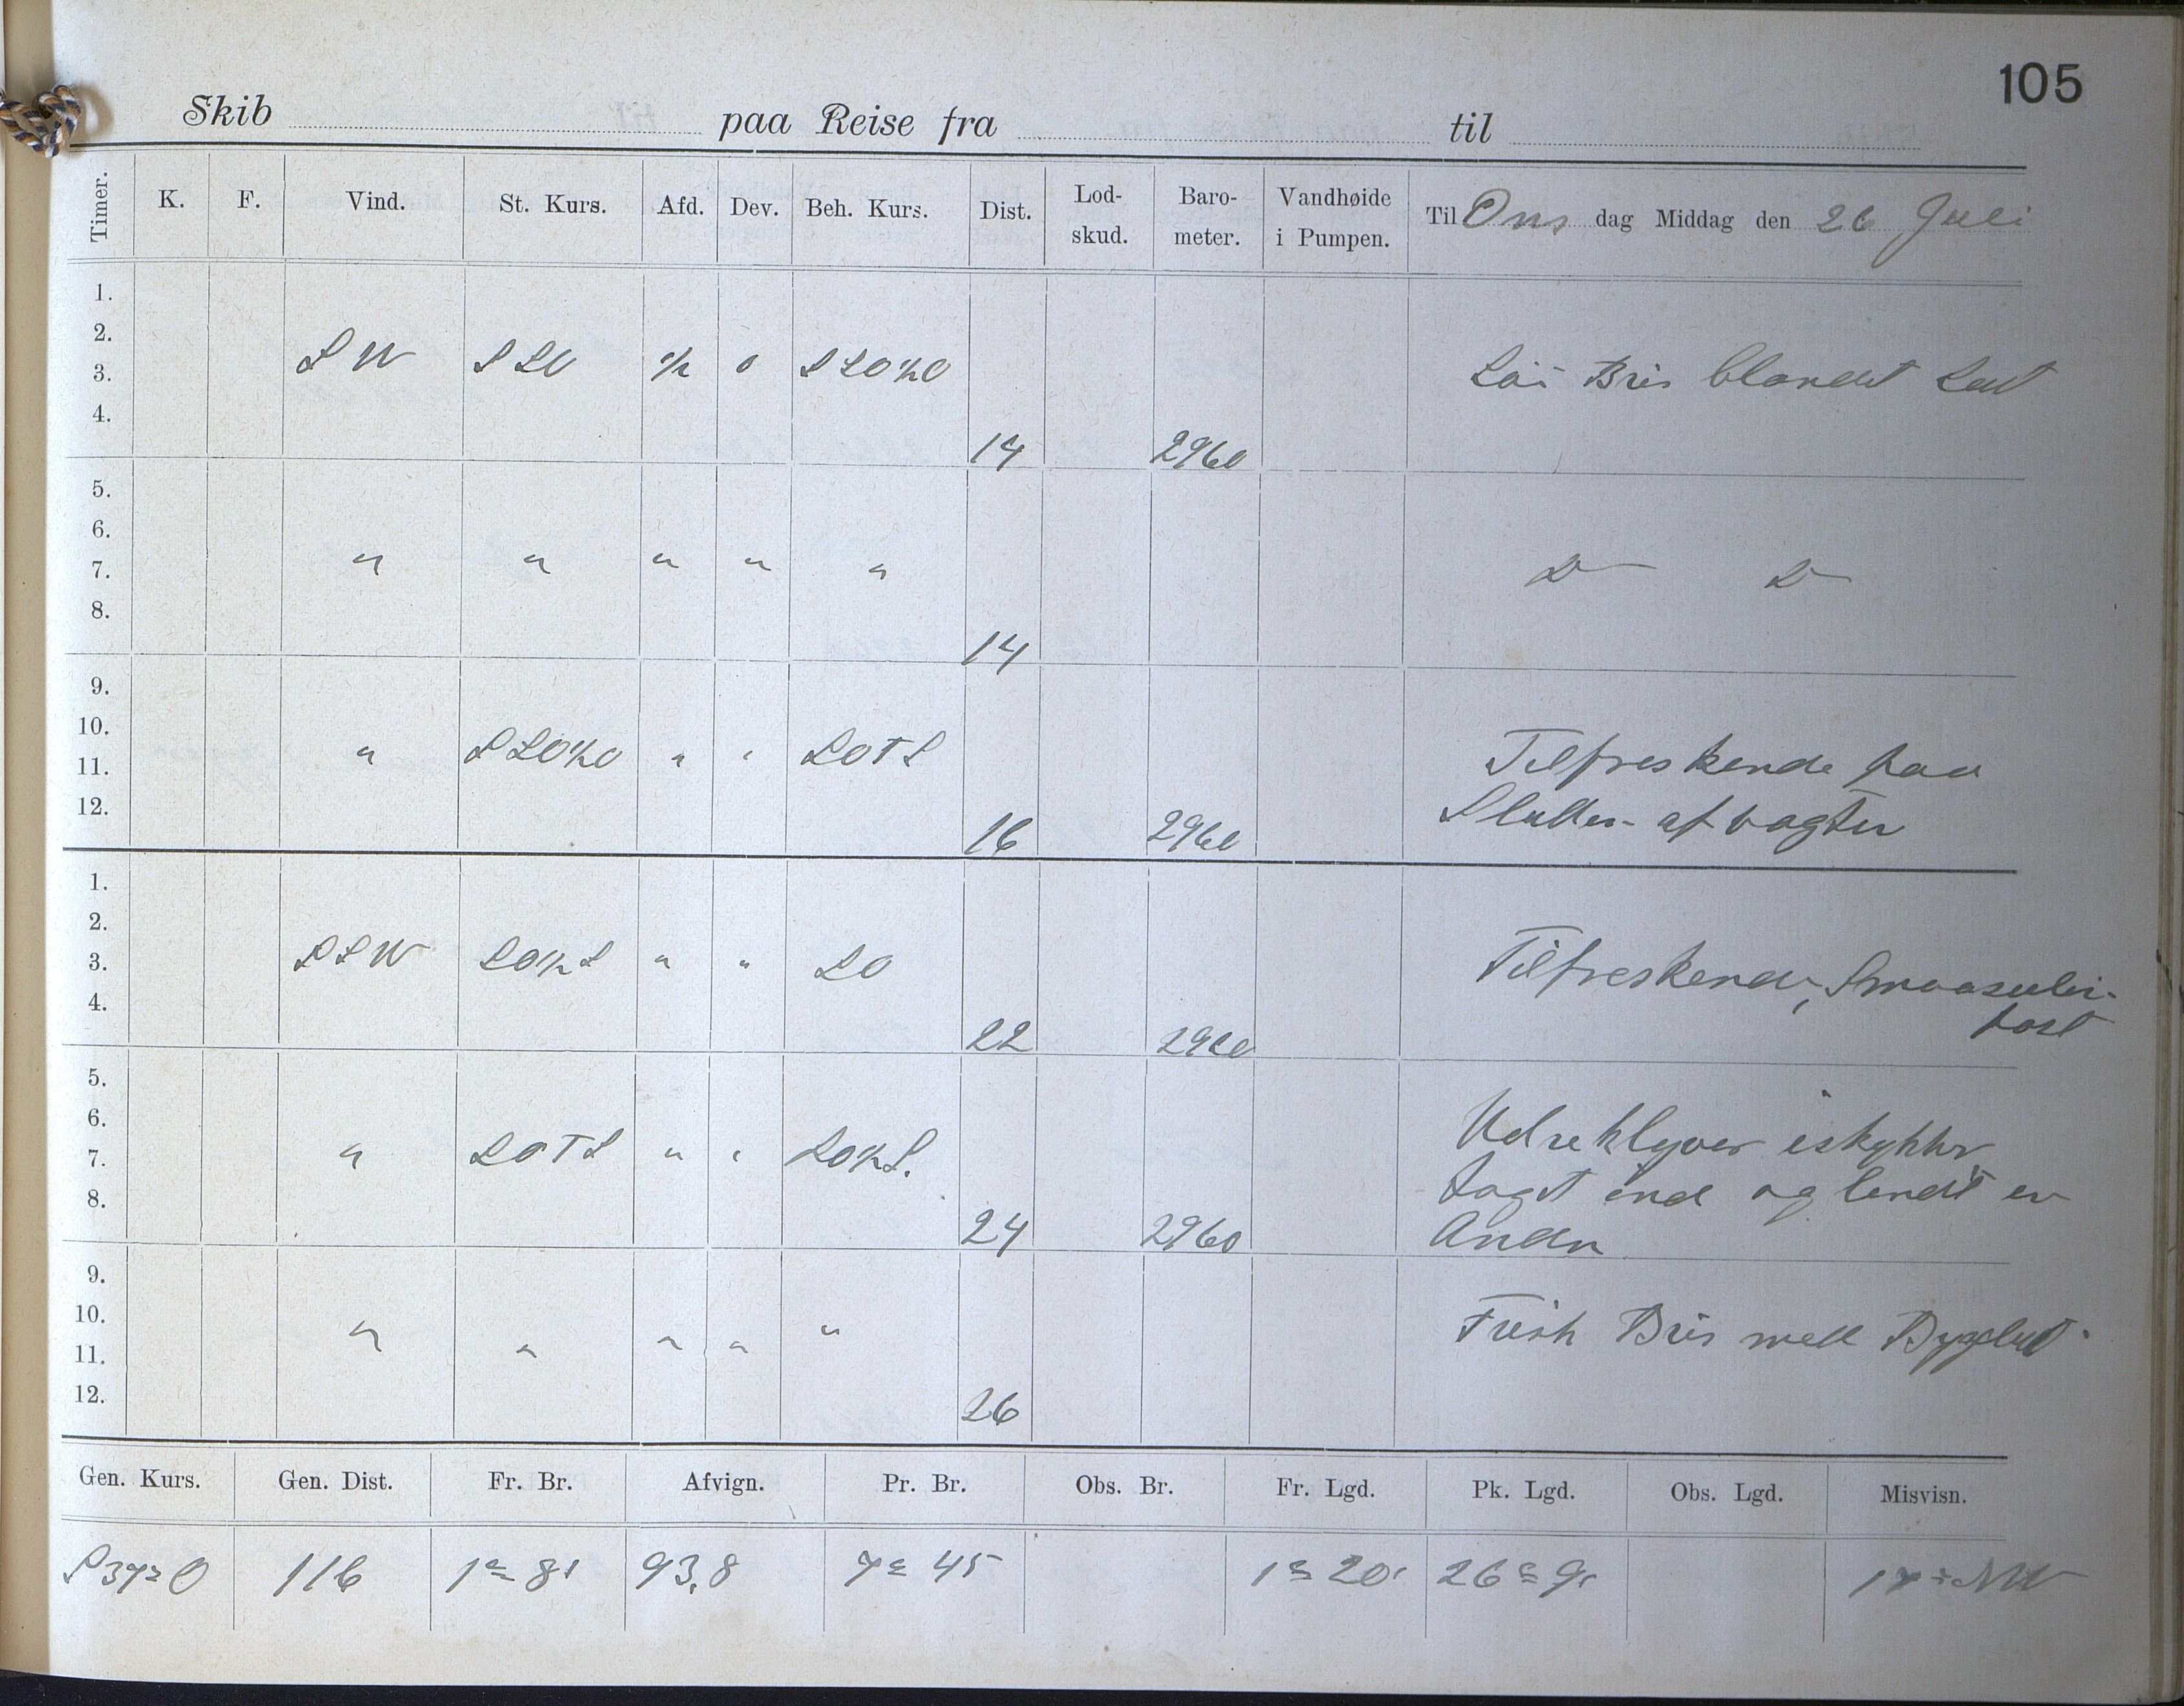 105
Skib paa Reise fra til
Timer. K. F. Vind. St. Kurs. Afd. Dev. Beh. Kurs. Dist. Lod-skud. Baro-meter. Vandhøide i Pumpen. Til Ons dag Middag den 26 Juli
1.
2.
3. SW SSO ½ 0 SSO½O Løi Bris blandet Luft
4. 14 2960
5.
6.
7. " " " " " D— D—
8. 14
9.
10.
11. " SSO½O " " SOTS Tilfreskende paa
12. 16 2960 Slutten af vagten
1.
2.
3. SSW SO½S " " SO Tilfreskende, Smaaseilei-
4. 22 2960 fast
5.
6. Udreklyver iskykker
7. " SOTS " " SO½S. taget ind og lendt en
8. 24 2960 Anden
9.
10. Frisk Bris med Bygeluft
11. " " " " "
12. 26
Gen. Kurs. Gen. Dist. Fr. Br. Afvign. Pr. Br. Obs. Br. Fr. Lgd. Pk. Lgd. Obs. Lgd. Misvisn.
S37°O 116 1° 8' 93,8 7° 45 1° 20' 26° 9' 17° NW